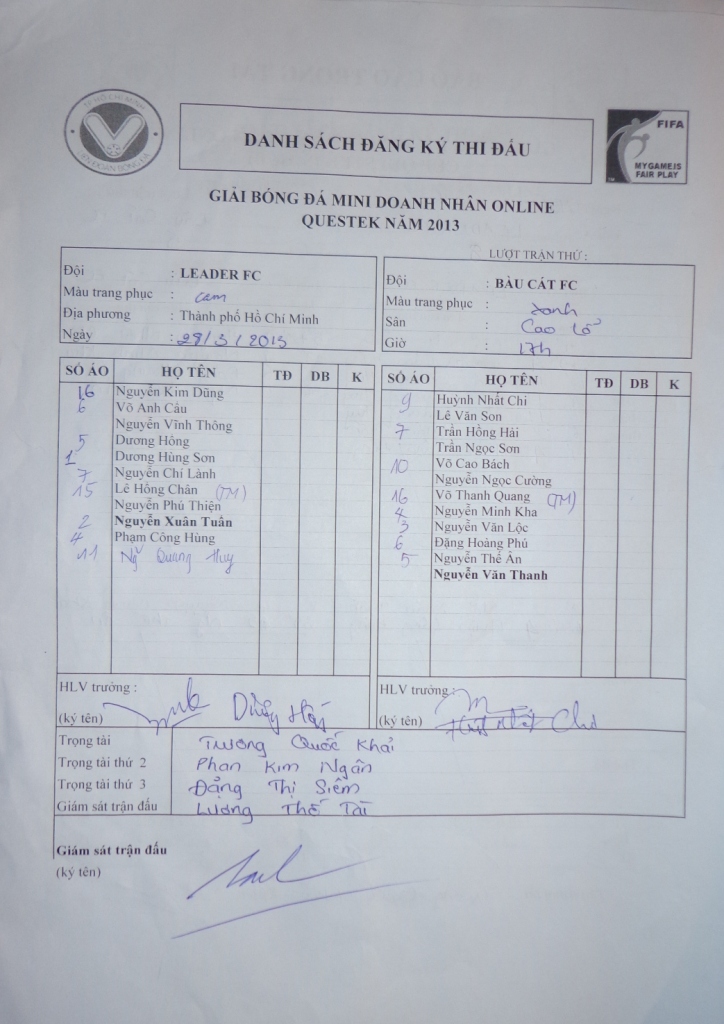 TP HỒ CHÍ MINH
LIÊN ĐOÀN BÓNG ĐÁ
DANH SÁCH ĐĂNG KÝ THI ĐẤU
FIFA
MY GAME IS
FAIR PLAY
GIẢI BÓNG ĐÁ MINI DOANH NHÂN ONLINE
QUESTEK NĂM 2013
LƯỢT TRẬN THỨ :
Đội : LEADER FC
Màu trang phục : cam
Địa phương : Thành phố Hồ Chí Minh
Ngày : 29/3/2013
Đội : BÀU CÁT FC
Màu trang phục : xanh
Sân : Cao Lỗ
Giờ : 17h
SỐ ÁO HỌ TÊN TĐ DB K
16 Nguyễn Kim Dũng
6 Võ Anh Câu
Nguyễn Vĩnh Thông
5 Dương Hồng
1 Dương Hùng Sơn
7 Nguyễn Chí Lành
15 Lê Hồng Chân (TM)
Nguyễn Phú Thiện
2 Nguyễn Xuân Tuân
4 Phạm Công Hùng
11 Ng Quang Huy
SỐ ÁO HỌ TÊN TĐ DB K
9 Huỳnh Nhất Chi
Lê Văn Son
7 Trần Hồng Hải
Trần Ngọc Sơn
10 Võ Cao Bách
Nguyễn Ngọc Cường
16 Võ Thanh Quang (TM)
4 Nguyễn Minh Kha
3 Nguyễn Văn Lộc
6 Đặng Hoàng Phú
5 Nguyễn Thế Ân
Nguyễn Văn Thanh
HLV trưởng :
(ký tên)
HLV trưởng :
(ký tên)
Trọng tài Trương Quốc Khải
Trọng tài thứ 2 Phan Kim Ngân
Trọng tài thứ 3 Đặng Thị Siêm
Giám sát trận đấu Lương Thế Tài
Giám sát trận đấu
(ký tên)